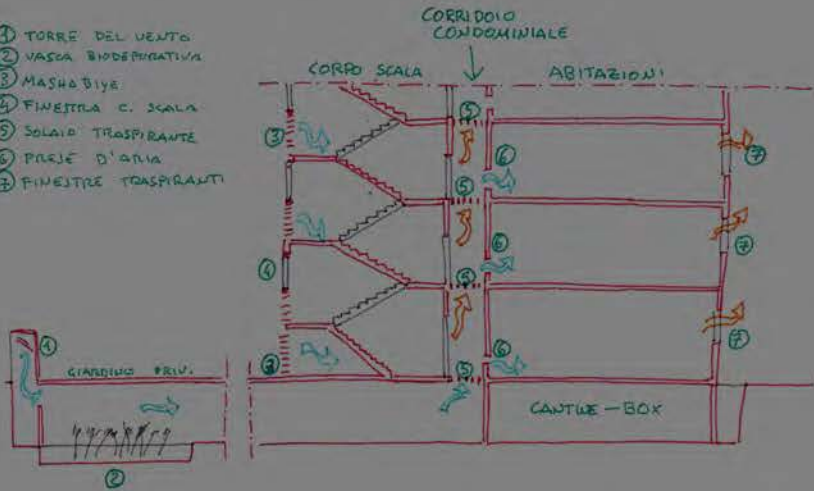 ① TORRE DEL VENTO
② VASCA BIODEPURATIVA
③ MASHABIYE
④ FINESTRA C. SCALA
⑤ SOLAIO TRASPIRANTE
⑥ PRESE D'ARIA
⑦ FINESTRE TRASPIRANTI
CORRIDOIO
CONDOMINIALE
CORPO SCALA
ABITAZIONI
⑤
③
⑥
⑦
⑤
⑥
⑦
④
⑤
①
⑦
GIARDINO PRIV.
③
⑤
⑥
CANTINE - BOX
②